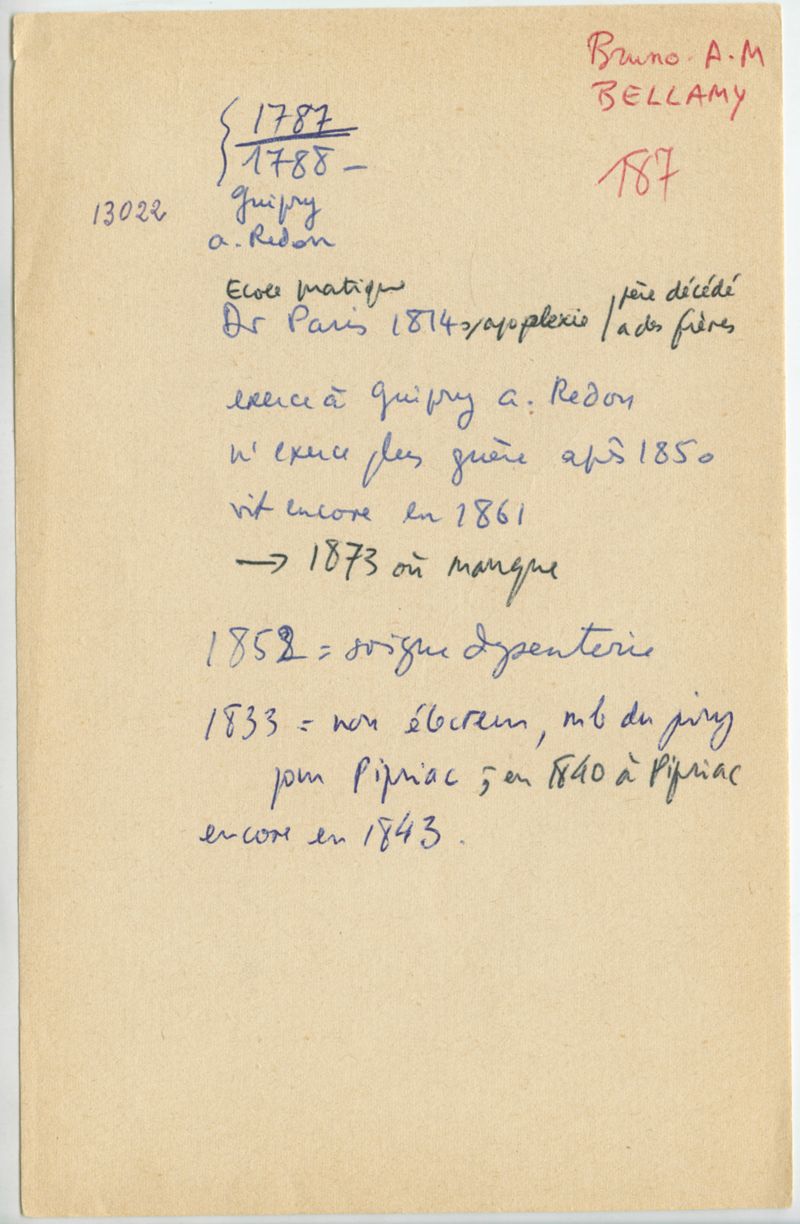 Bruno. A.M
BELLAMY
187
1787
1788 –
13022
Guipry
a. Redon
Ecole pratique
Dr Paris 1814 s/apoplexie / père décédé
a des frères
exerce à Guipry a. Redon
n'exerce plus guère après 1850
vit encore en 1861
→ 1873 où manque
1852 = soigne dysenterie
1833 = non électeur, mb du jury
pour Pipriac ; en 1840 à Pipriac
encore en 1843.